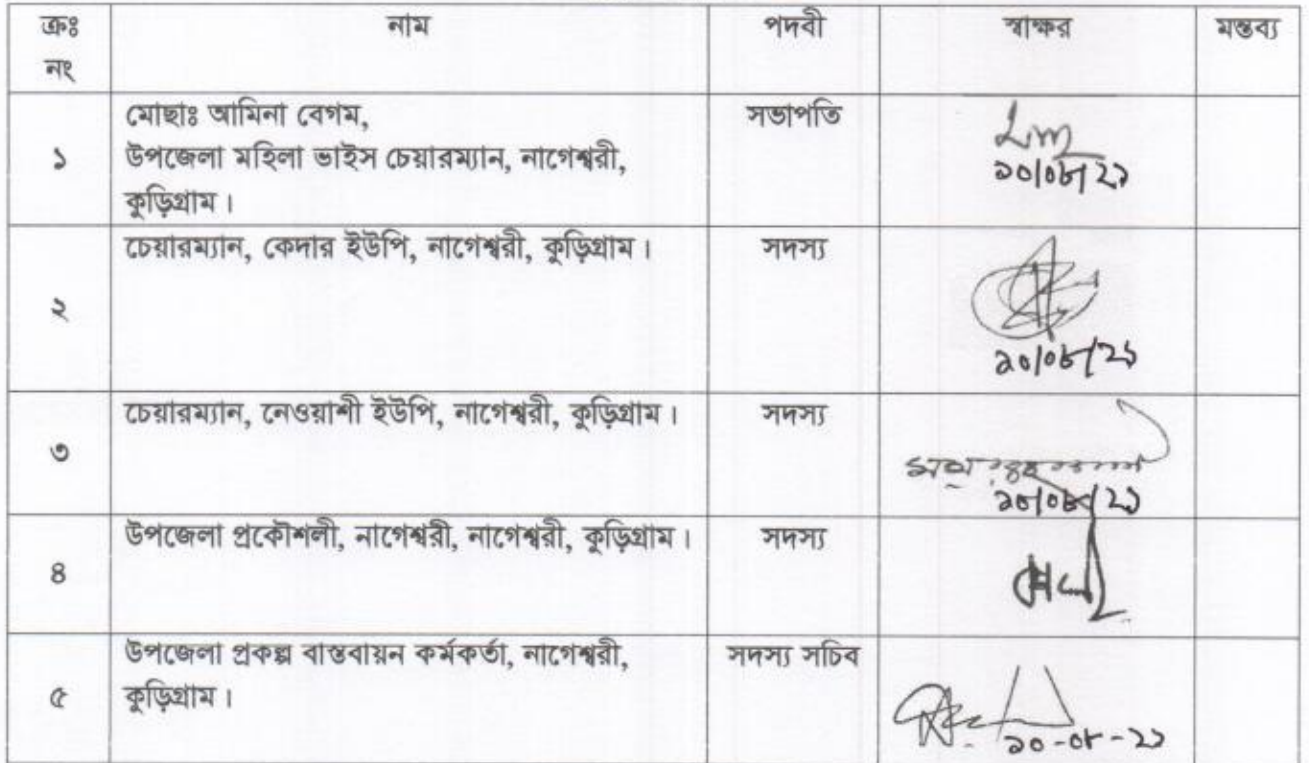 ক্রঃ নং নাম পদবী স্বাক্ষর মন্তব্য
মোছাঃ আমিনা বেগম, সভাপতি
১ উপজেলা মহিলা ভাইস চেয়ারম্যান, নাগেশ্বরী,
কুড়িগ্রাম।
১০/০৮/২১
চেয়ারম্যান, কেদার ইউপি, নাগেশ্বরী, কুড়িগ্রাম। সদস্য
২
১০/০৮/২১
চেয়ারম্যান, নেওয়াশী ইউপি, নাগেশ্বরী, কুড়িগ্রাম। সদস্য
৩
১০/০৮/২১
উপজেলা প্রকৌশলী, নাগেশ্বরী, নাগেশ্বরী, কুড়িগ্রাম। সদস্য
৪
উপজেলা প্রকল্প বাস্তবায়ন কর্মকর্তা, নাগেশ্বরী, সদস্য সচিব
৫ কুড়িগ্রাম।
১০-০৮-২১